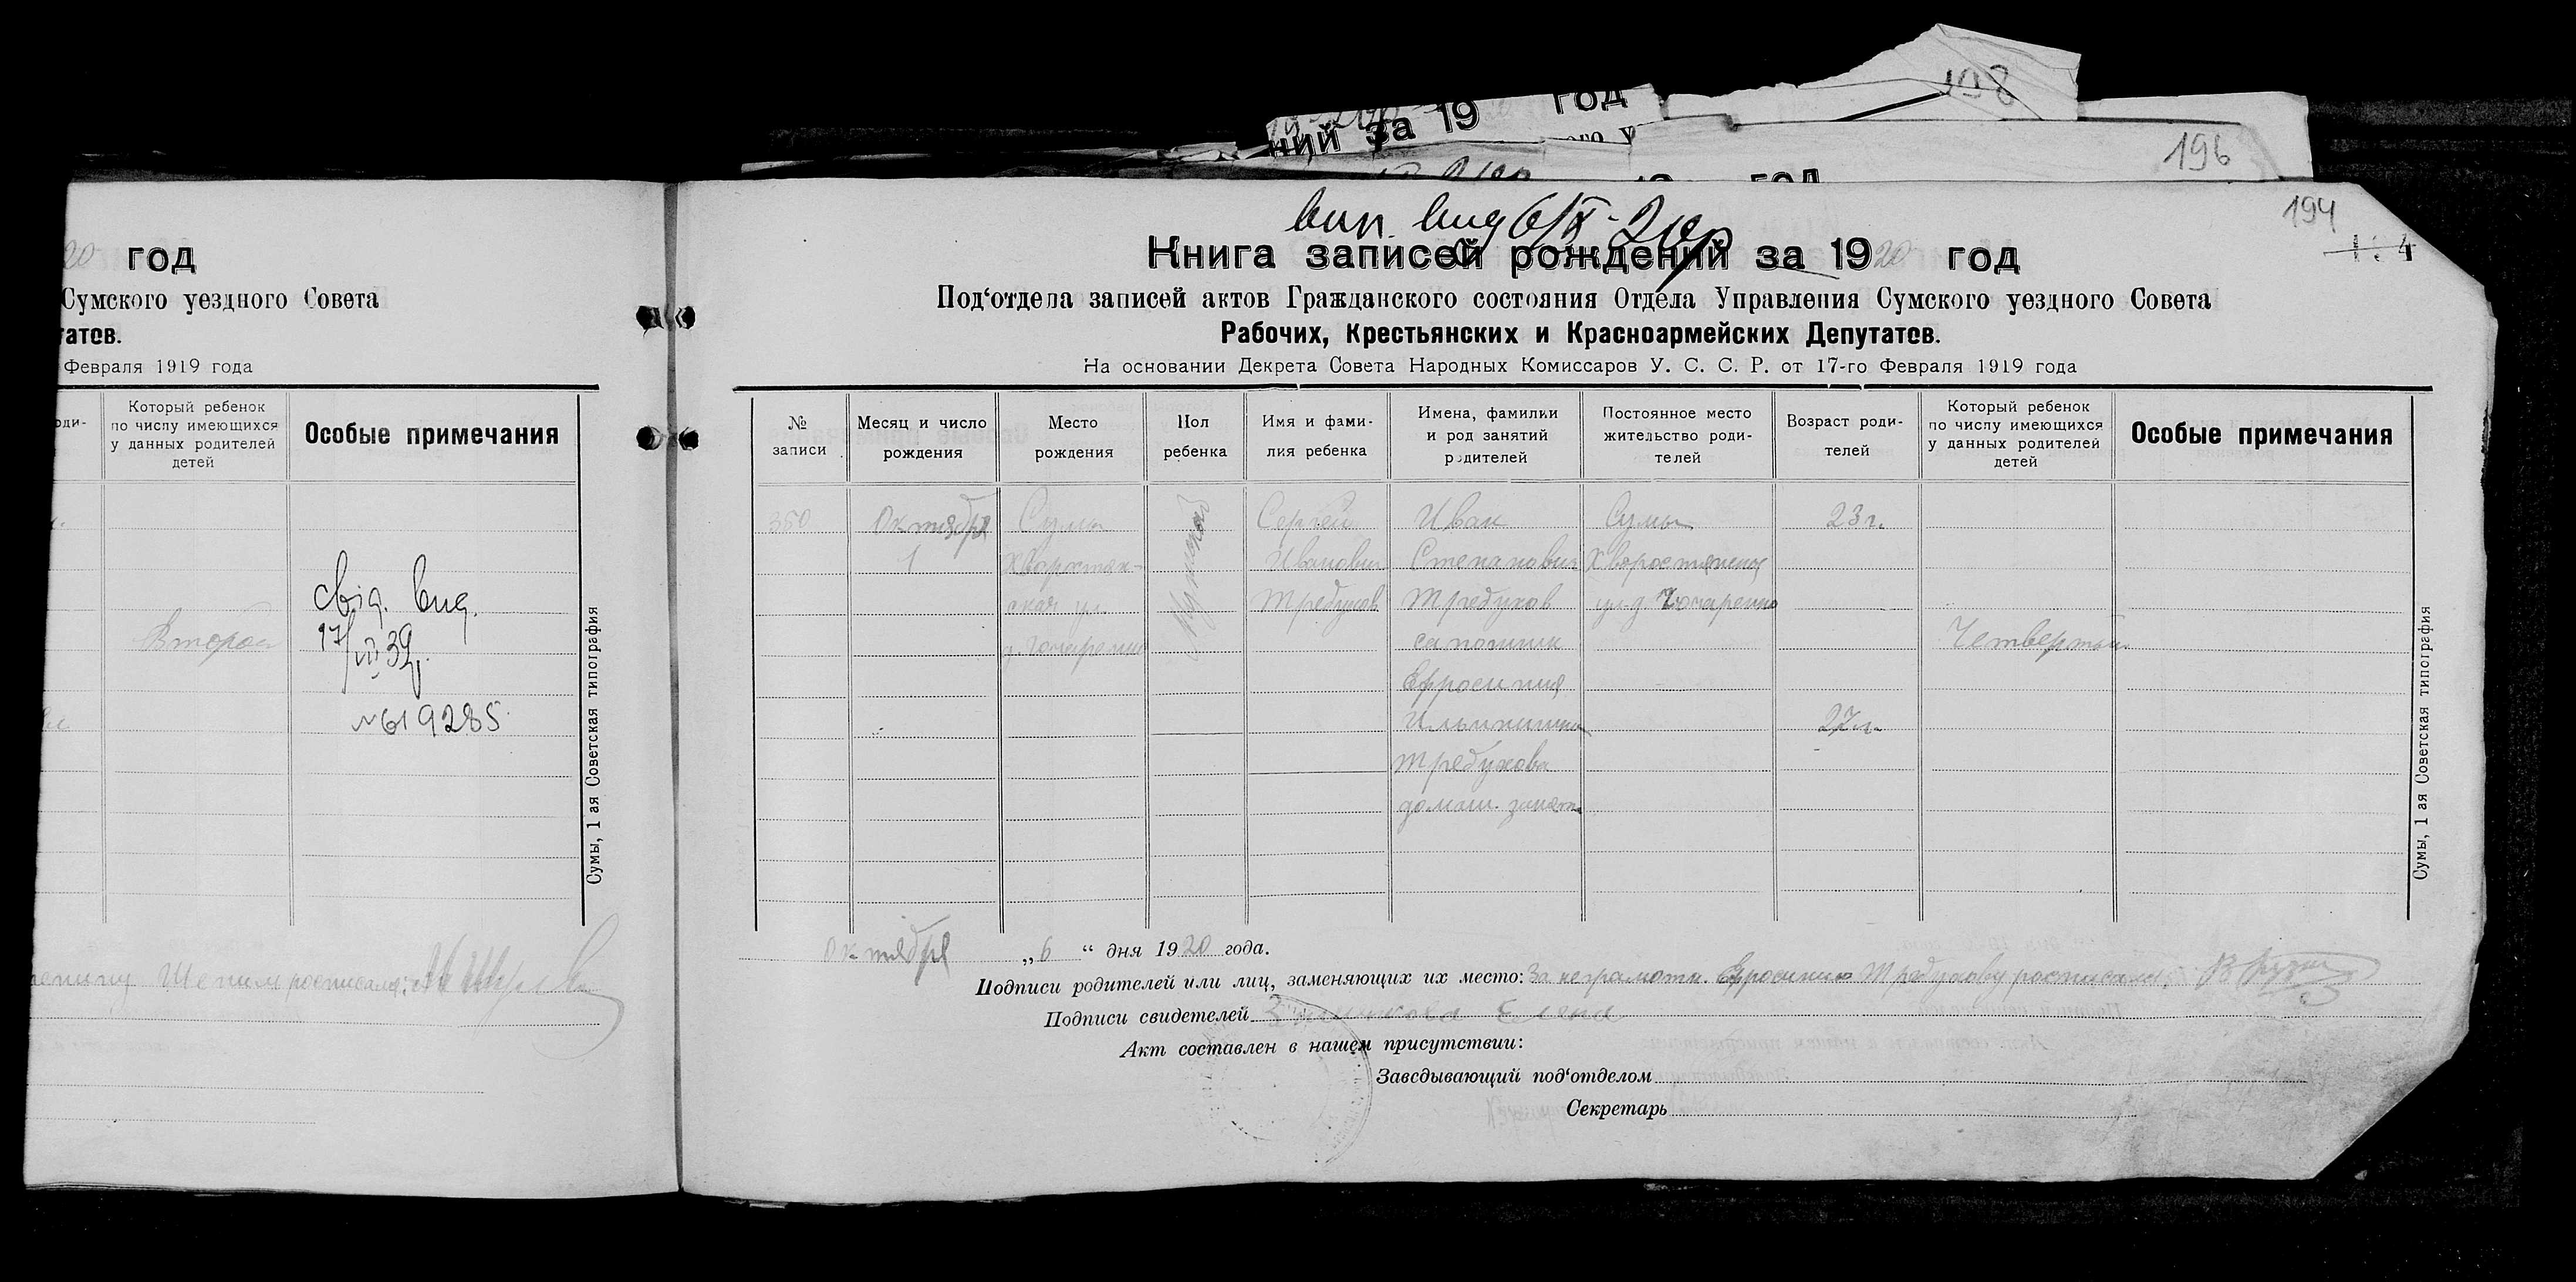 198
ний за 19 год
196
год
194
20 год
Сумского уездного Совета
татов.
Февраля 1919 года
Который ребенок
по числу имеющихся
у данных родителей
детей
Особые примечания
Второй
свід. вид.
17/VII 39р.
№619285
Сумы, 1 ая Советская типография
вип. вид 6/X - 20р
Книга записей рождений за 1920 год
Под‘отдела записей актов Гражданского состояния Отдела Управления Сумского уездного Совета
Рабочих, Крестьянских и Красноармейских Депутатов.
На основании Декрета Совета Народных Комиссаров У. С. С. Р. от 17-го Февраля 1919 года
№
записи
Месяц и число
рождения
Место
рождения
Пол
ребенка
Имя и фами-
лия ребенка
Имена, фамилии
и род занятий
родителей
Постоянное место
жительство роди-
телей
Возраст роди-
телей
Который ребенок
по числу имеющихся
у данных родителей
детей
Особые примечания
350
Октября
1
Сумы
Хворостян-
ская ул.
д. Гончаренко
Мужской
Сергей
Иванович
Требухов
Иван
Степанович
Требухов
сапожник
Ефросиния
Ильинишна
Требухова
домаш. занят.
Сумы
Хворостянская
ул. д. Гончаренко
23 г.
27 л.
Четвертый
Сумы, 1 ая Советская типография
Октября „6“ дня 1920 года.
Подписи родителей или лиц, заменяющих их место: За неграмотн. Ефросинию Требухову росписался:
Подписи свидетелей Елена
Акт составлен в нашем присутствии:
Заведывающий под‘отделом
Секретарь